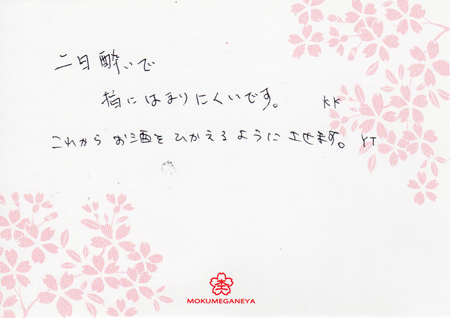 二日酔いで
指にはまりにくいです。 KK
これから お酒を ひかえるように させます。 YT
杢
MOKUMEGANEYA